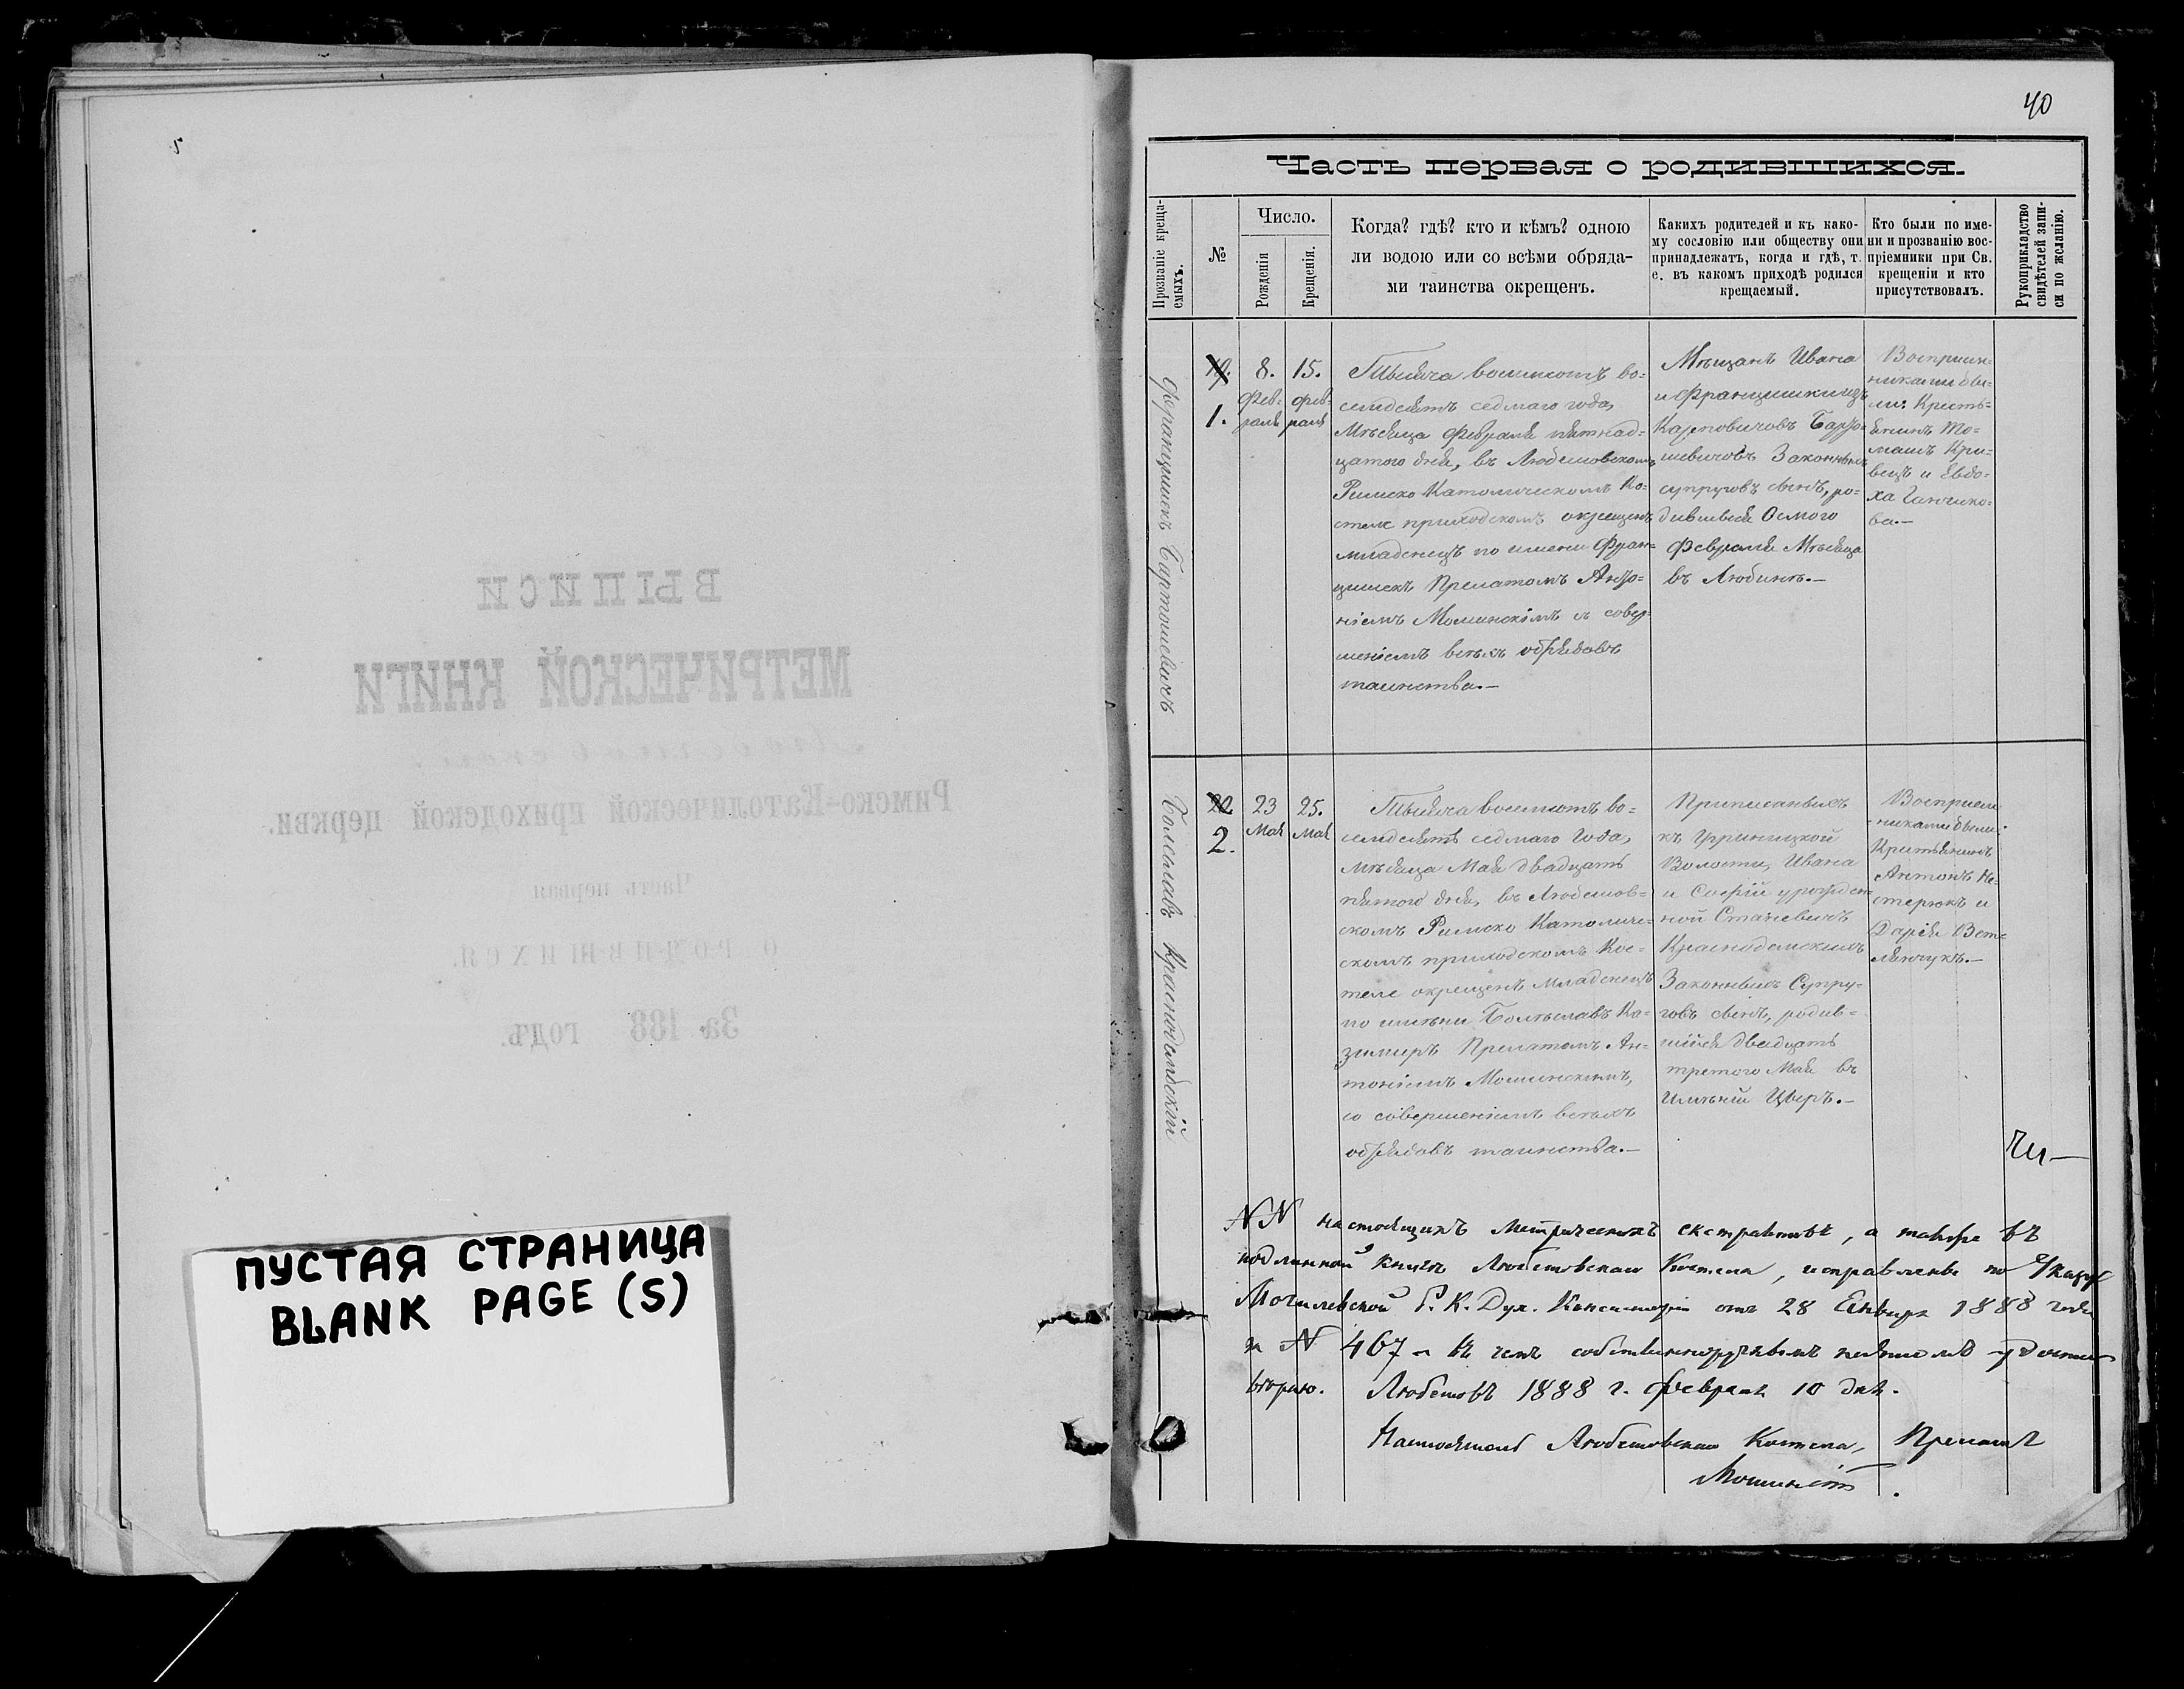 ПУСТАЯ СТРАНИЦА
BLANK PAGE (S)
40
Часть первая о родившихся.
Прозваніе креща-
емыхъ.
№
Число.
Рожденія
Крещенія.
Когда? гдѣ? кто и кѣмъ? одною
ли водою или со всѣми обряда-
ми таинства окрещенъ.
Какихъ родителей и къ како-
му сословію или обществу они
принадлежатъ, когда и гдѣ, т.
е. въ какомъ приходѣ родился
крещаемый.
Кто были по име-
ни и прозванію вос-
пріемники при Св.
крещеніи и кто
присутствовалъ.
Рукоприкладство
свидѣтелей запи-
си по желанію.
Францишекъ Бартошевичъ
19.
1.
8.
Фев-
раля
15.
фев-
раля
Тысяча восемьсотъ во-
семдесятъ седмаго года,
Мѣсяца Февраля пятнад-
цатого дня, въ Любешовскомъ
Римско Католическомъ Ко-
стеле приходскомъ окрещенъ
младенецъ по имени Фран-
цишекъ Прелатомъ Анто-
ніемъ Мошинскимъ съ совер-
шеніемъ всѣхъ обрядовъ
таинства.—
Мѣщанъ Ивана
и Францишки изъ
Карповичовъ Барто-
шевичовъ Законныхъ
супруговъ сынъ, ро-
дившійся Осмого
Февраля Мѣсяца
въ Любинѣ.—
Восприем-
никами бы-
ли: Кресть-
янинъ То-
машъ Кри-
вецъ и Евдо-
ха Ганчико-
ва.—
Болеславъ Краснодемскій
22
2.
23
Мая
25.
Мая
Тысяча восемьсотъ во-
семдесятъ седмаго Года,
мѣсяца Мая двадцать
пятого дня, въ Любешов-
скомъ Римско Католиче-
скомъ приходскомъ Кос-
теле окрещенъ младенецъ
по имени Болеславъ Ка-
зимиръ Прелатомъ Ан-
тоніемъ Мошинскимъ,
со совершеніемъ всѣхъ
обрядовъ таинства.—
Приписанныхъ
къ
Волости, Ивана
и Софіи урожден-
ной Станевичъ
Краснодемскихъ
Законныхъ Супру-
говъ сынъ, родив-
шійся двадцать
третого Мая въ
Имѣніи Цверъ.—
Восприем-
никами были:
Крестьянинъ
Антонъ Не-
стерюкъ и
Дарія
NN настоящихъ Метрическихъ екстрактовъ, а также въ
подлинной книгѣ Любешовскаго Костела, исправлены по Указу
Могилевской Р. К. Дух. Консисторіи отъ 28 Января 1888 года
за N 467 - въ чемъ собственноручнымъ подписомъ удосто-
вѣряю. Любешовъ 1888 г. Февраля 10 дня.
Настоятель Любешовскаго Костела, Прелатъ
Мошинскій.